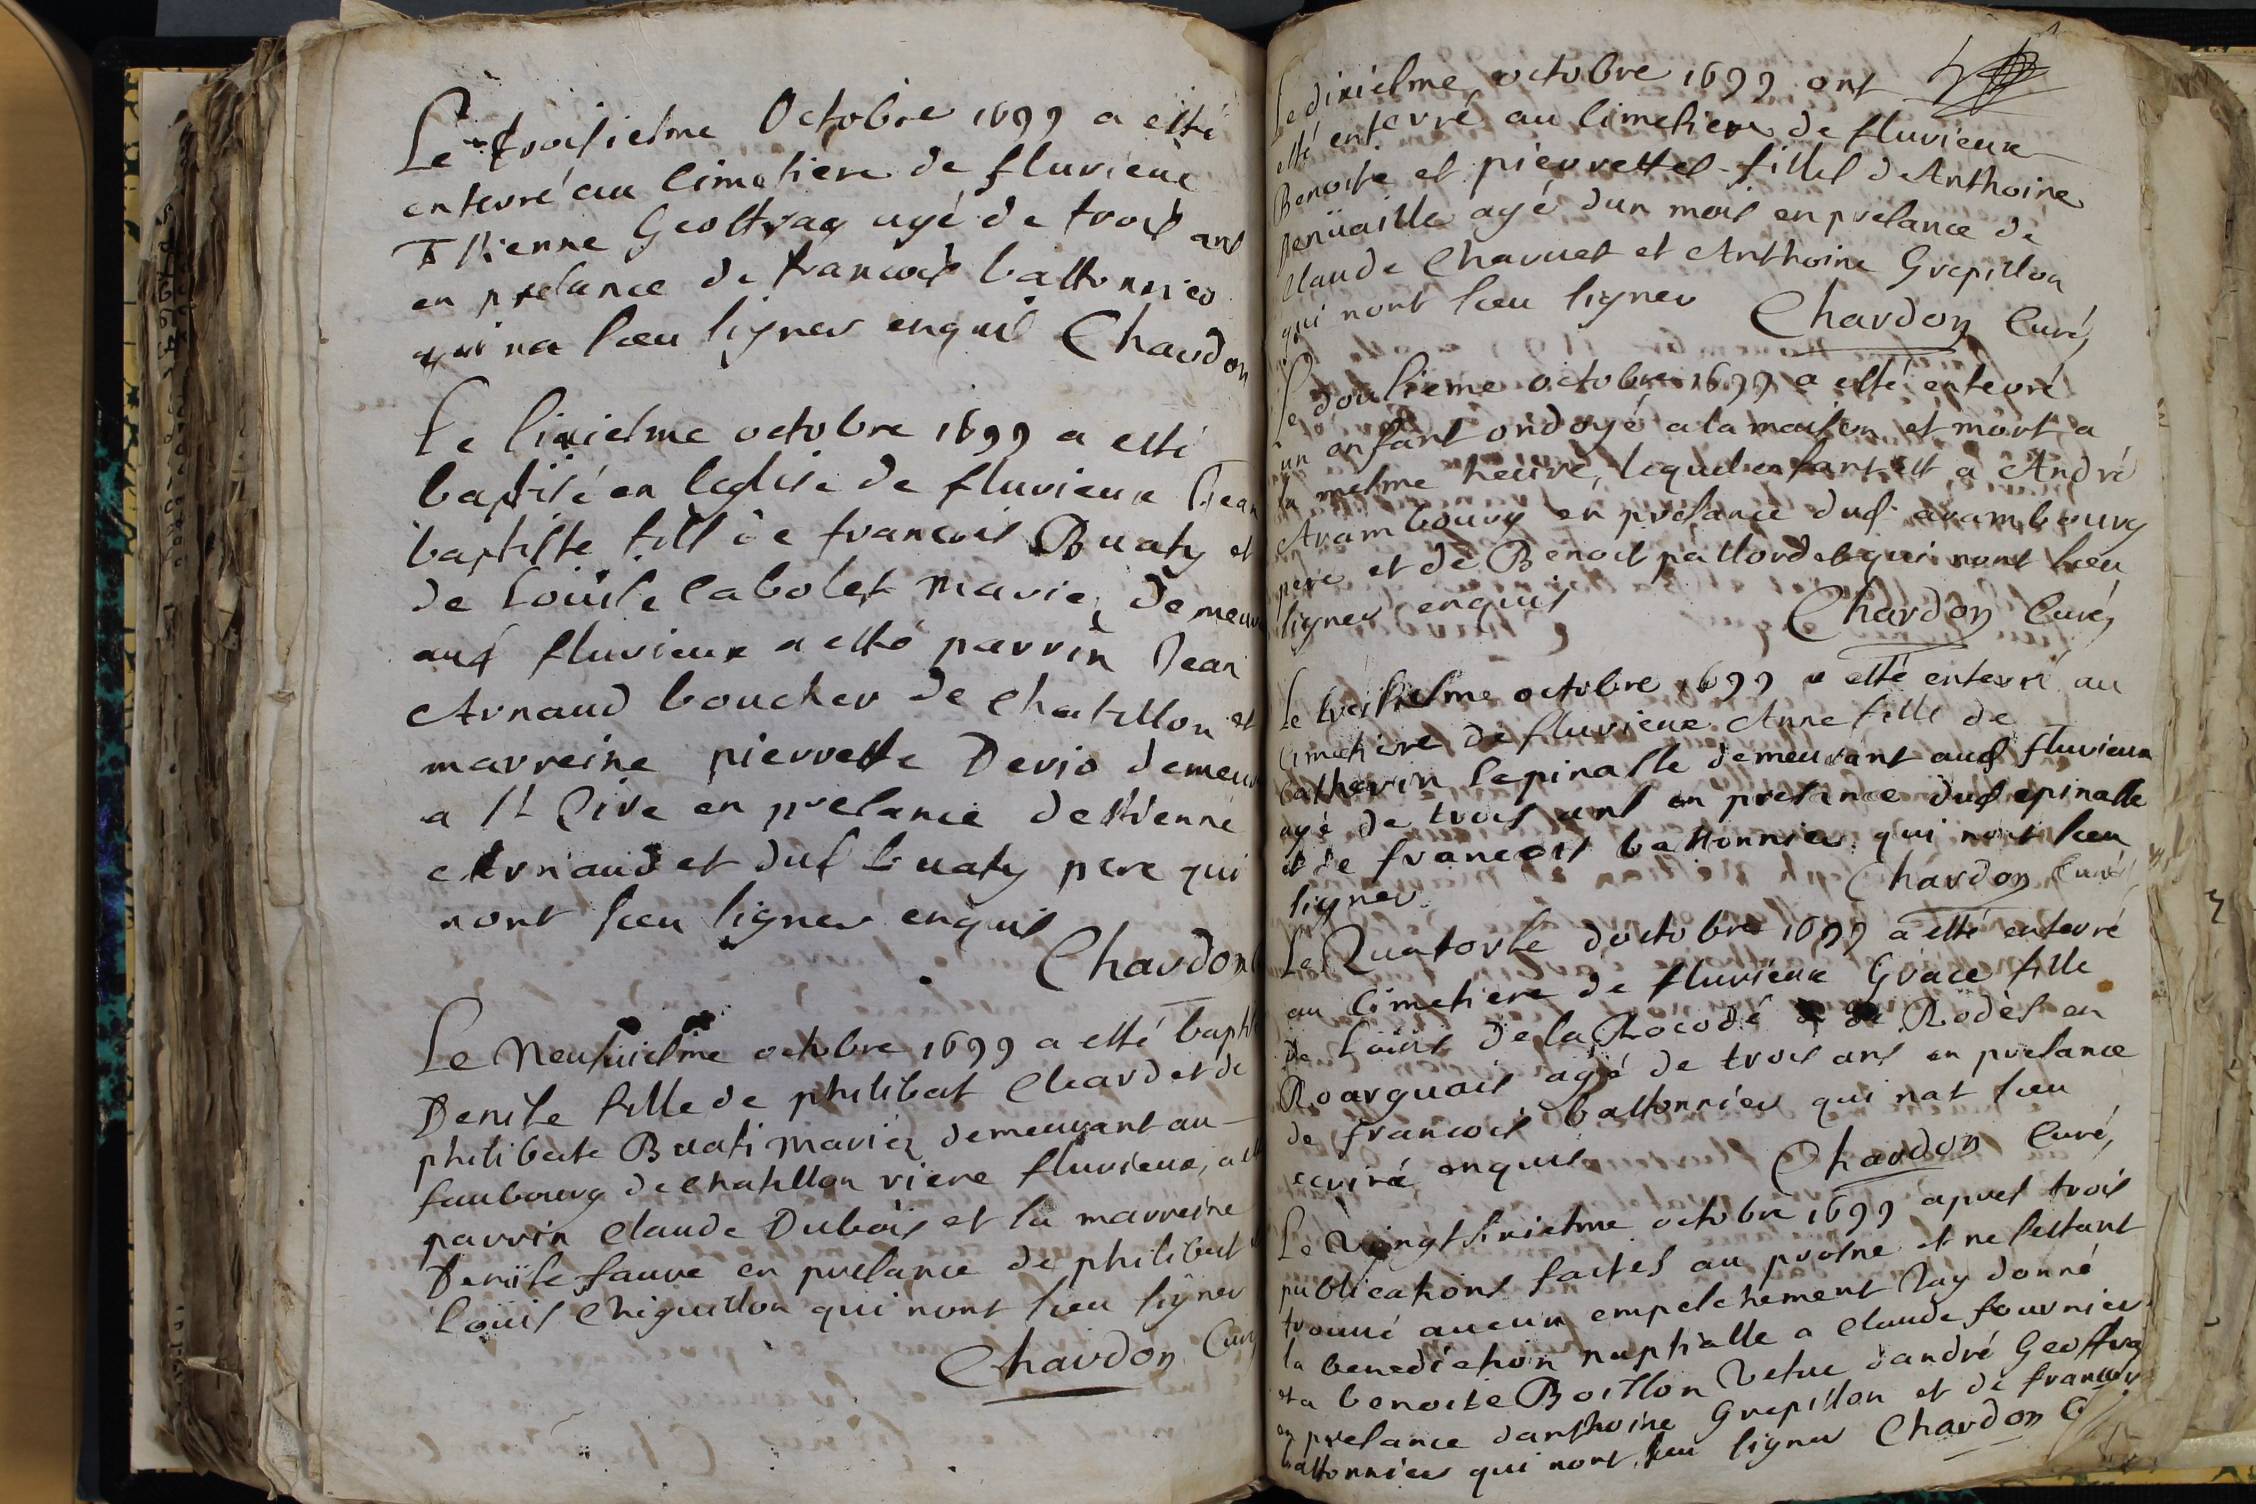 Le troisiesme Octobre 1699 a esté
enterré au cimetiere de fluvieux
Estienne Geoffray agé de trois ans
en presance de francois bastonnier
qui na sceu signer enquis Chardon
Le sixiesme octobre 1699 a esté
baptisé en leglise de fluvieux Jean
baptiste fils de francois Buaty et
de Louise Cabolet mariez demeur
aud fluvieux a esté parrin Jean
Arnaud boucher de Chatillon et
marreine pierrette Derio demeur
a St Cire en presance destienne
Arnaud et dud buaty pere qui
nont sceu signer enquis
Chardon
Le Neufuiesme octobre 1699 a esté bapti
Denise fille de philibert Chard et de
philiberte Buati mariez demeurant au
faubourg de chatillon riere fluvieux, a esté
parrin claude Dubois et la marreine
Denise faure en presance de philibert
Louis chiguillon qui nont sceu signer
Chardon Curé
Le dixiesme octobre 1699 ont
esté enterré au cimetiere de fluvieux
Benoite et pierrettes filles de Anthoine
agé dun mois en presance de
claude Charuet et Anthoine Grepillon
qui nont sceu signer Chardon Curé,
Le douzieme octobre 1699 a esté enterré
un enfant ondoyé a la maison et mort a
la mesme heure, lequel enfant est a André
Arambourg en presance dud arambourg
pere et de Benoit pallordet qui nont sceu
signer enquis Chardon Curé,
Le treiziesme octobre 1699 a esté enterré au
cimetiere de fluvieux Anne fille de
Catherin lepinasse demeurant aud fluvieux
agé de trois ans en presance dud epinasse
et de francois bastonnier qui nont sceu
signer. Chardon Curé
Le Quatorse doctobre 1699 a esté enterré
au cimetiere de fluvieux Grace fille
de Louis de la Rocode de Rodés en
Roarguais agé de trois ans en presance
de francois bastonnier qui nat sceu
ecriré enquis Chardon Curé,
Le vingt sixiesme octobre 1699 apres trois
publications faites au prosne et ne sestant
trouué aucun empeschement Jay donné
la benediction nuptialle a claude fournier
et a benoite Boisson Vefue dandré Geoffray
en presance danthoine Grepillon et de francois
bastonnier qui nont sceu signer Chardon C